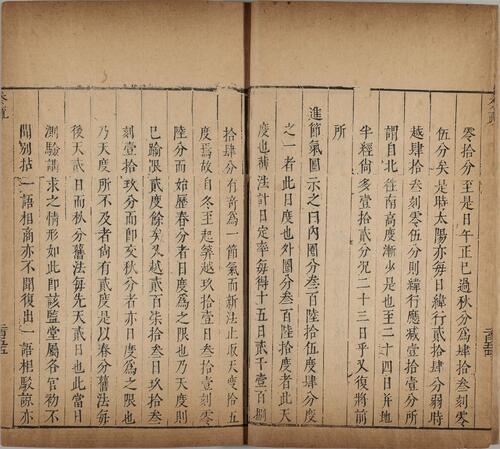 零拾分至是日午正已過秋分為肆拾叁刻零
伍分矣是時太陽亦每日緯行貳拾肆分弱時
越肆拾叁刻零伍分則緯行應減壹拾壹分所
謂自北往南高度漸少是也至二十四日併地
半經尚多壹拾貳分况二十三日乎又復將前
所
進節氣圖示之曰內圈分叁百陸拾伍度肆分度
之一者此日度也外圈分叁百陸拾度者此天
度也舊法計日定率每得十五日貳千壹百捌
拾肆分有奇為一節氣而新法止取天度拾五
度焉故自冬至起筭越玖拾壹日叁拾壹刻零
陸分而始歷春分者日度為之限也乃天度則
已踰限貳度餘矣又越貳百柒拾叁日玖拾叁
刻壹拾玖分而即交秋分者亦日度為之限也
乃天度所不及者尚有貳度是以春分舊法每
後天貳日而秋分舊法每先天貳日也此當日
測驗講求之情形如此即該監堂屬各官物不
間別拈一語相商亦不聞復出一語相駁諒亦